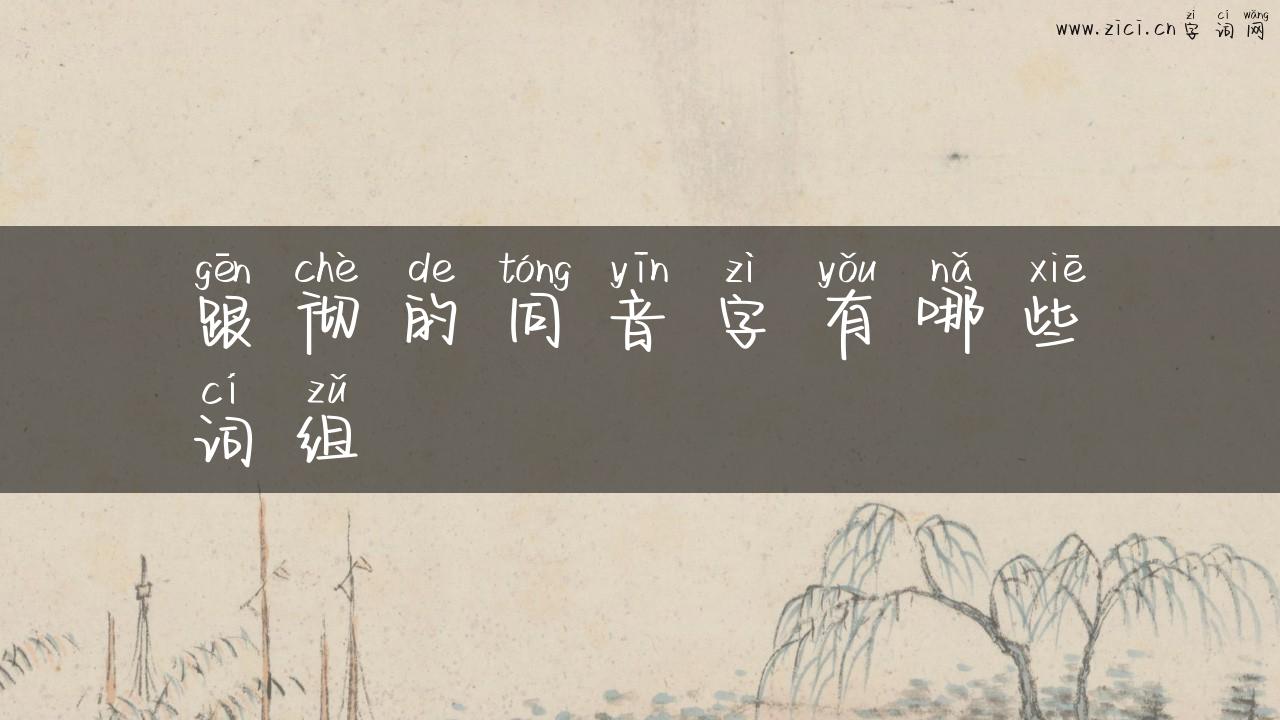 zì cí wǎng
www.zici.cn 字词网
gēn chè de tóng yīn zì yǒu nǎ xiē
跟彻的同音字有哪些
cí zǔ
词组